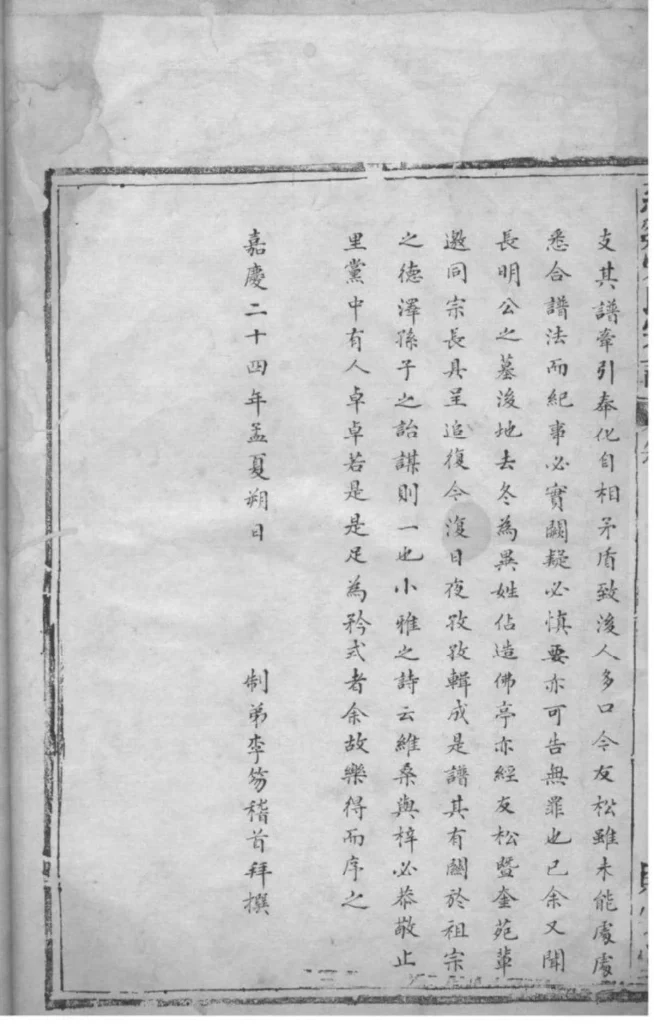 支其譜牽引奉化自相矛盾致後人多口今友松雖未能處處
悉合譜法而紀事必實闕疑必慎要亦可告無罪也已余又聞
長明公之墓後地去冬為異姓佔造佛亭亦經友松暨奎苑輩
邀同宗長具呈追復今復日夜孜孜輯成是譜其有關於祖宗
之德澤孫子之詒謀則一也小雅之詩云維桑與梓必恭敬止
里黨中有人卓卓若是是足為矜式者余故樂得而序之
嘉慶二十四年孟夏朔日 制弟李芴稽首拜撰